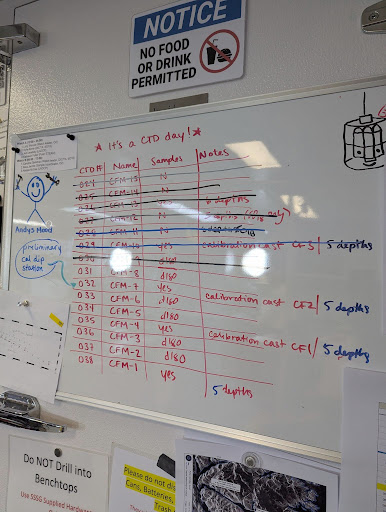 NOTICE
NO FOOD
OR DRINK
PERMITTED
★ It's a CTD day! ★
CTD# Name Samples Notes
024 CFM-15 N
025 CFM-14 N
026 CFM-13 N 6 depths
027 CFM-12 N
028 CFM-11 N
029 CFM-10 yes calibration cast CF3 | 5 depths
030 d180
031 CFM-8 d180
032 CFM-7 yes
033 CFM-6 d180 calibration cast CF2 | 5 depths
034 CFM-5 d180
035 CFM-4 yes
036 CFM-3 d180 calibration cast CF1 / 5 depths
037 CFM-2 d180
038 CFM-1 yes
5 depths
Andys Mood
preliminary
cal dip
station
Do NOT Drill into
Benchtops
Use SSSG Supplied
Please do not
Cans, Batteries,
Trash